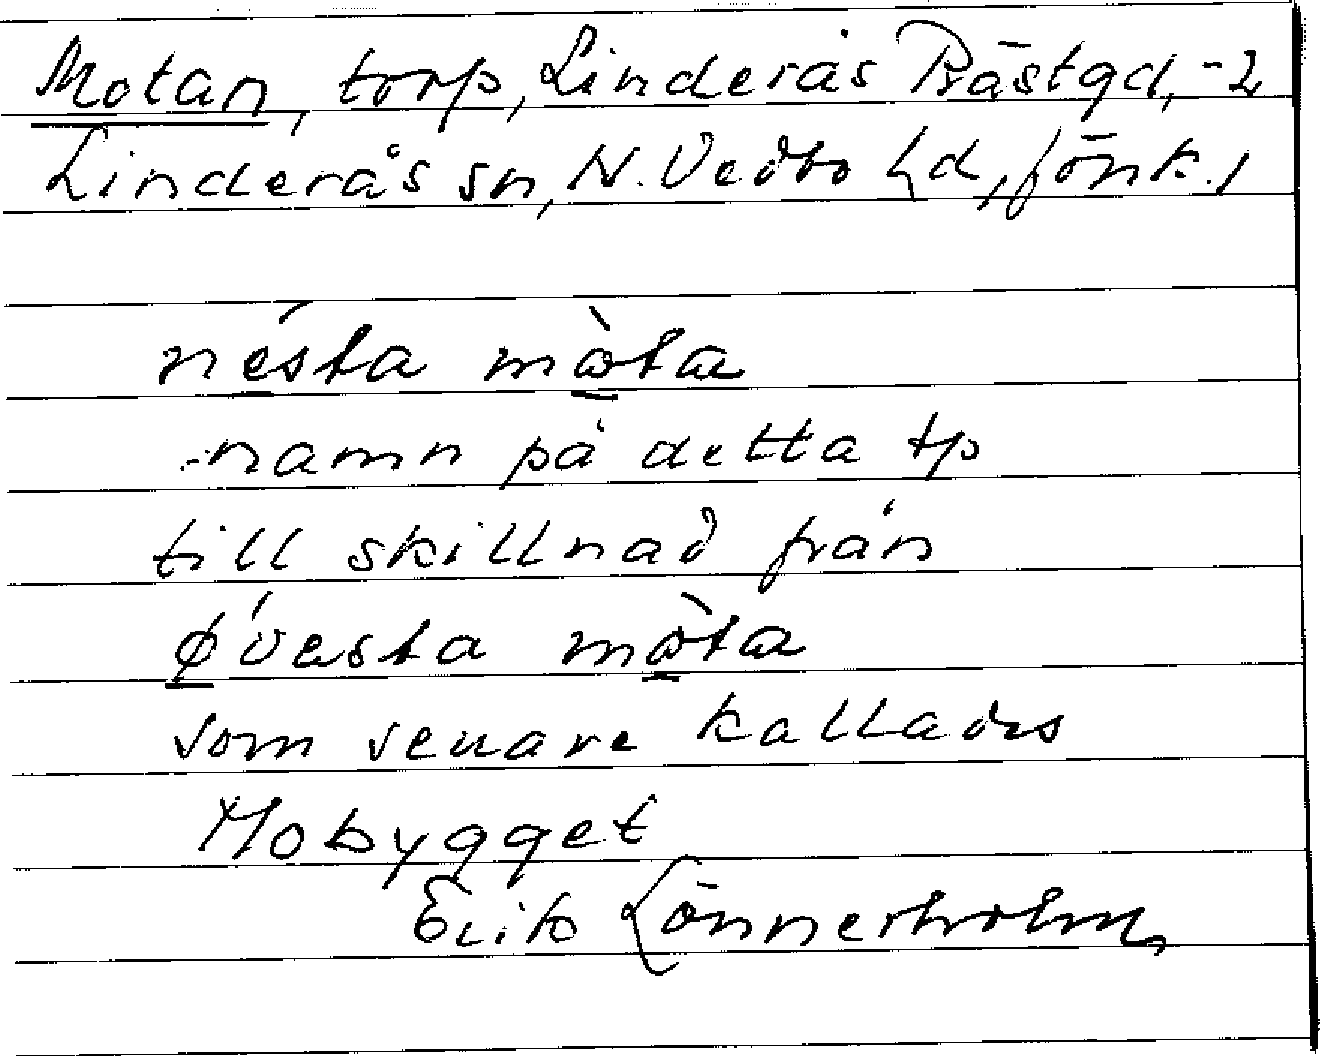 Motan, torp, Linderås Prästgd, -2
Linderås sn, N. Vedbo hd, Jönk. l
nésta mòta
-namn på detta tp
till skillnad från
ǿvesta mòta
som senare kallades
Mobygget
Erik Lönnerholm